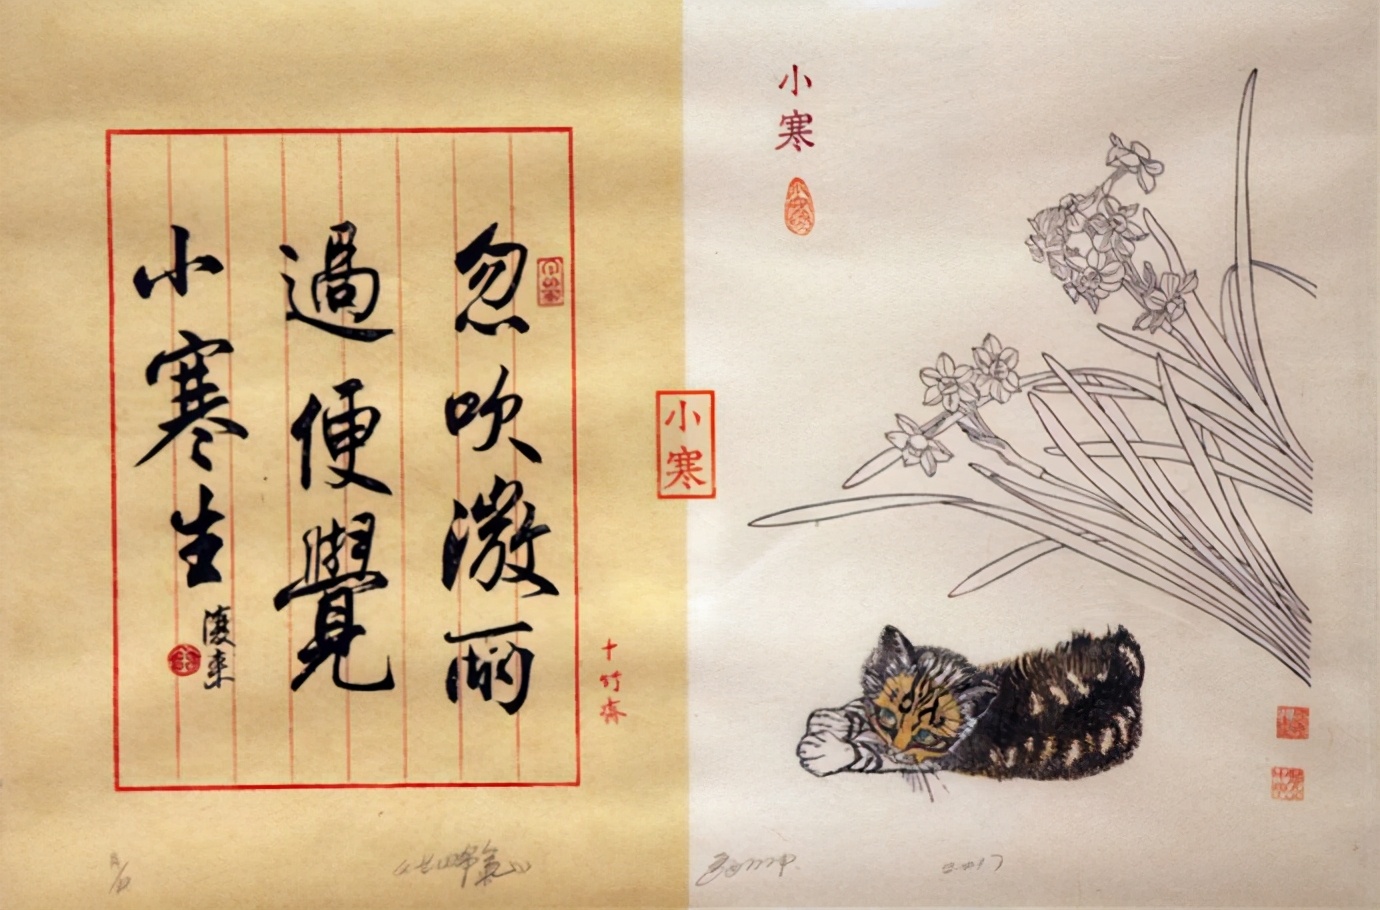 忽吹溦雨
過便覺
小寒生
十竹齋
小寒
小寒
2017